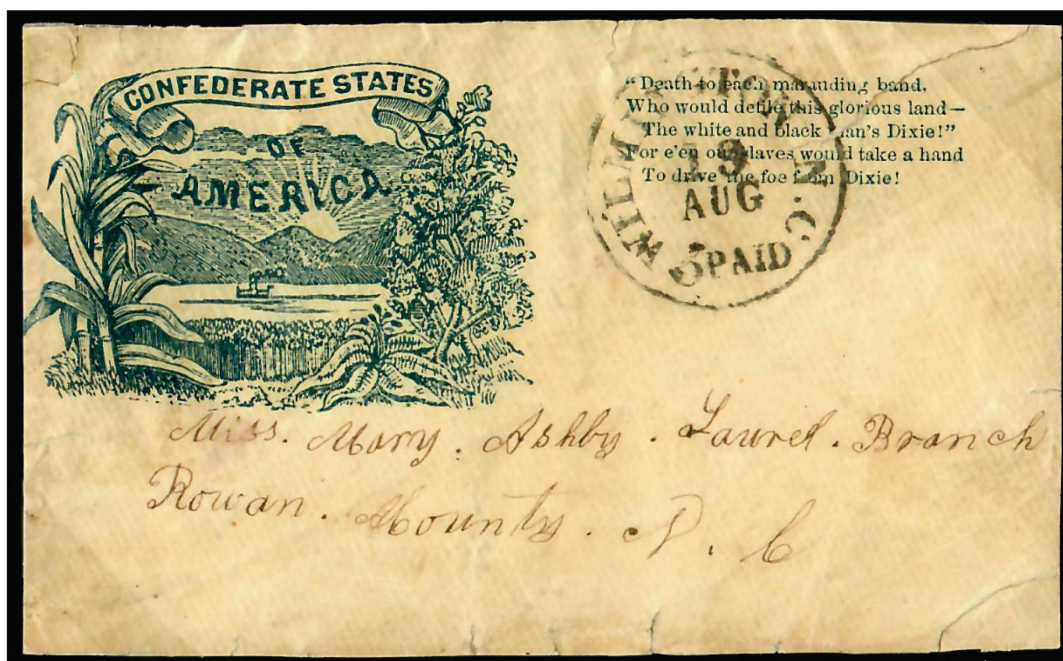 CONFEDERATE STATES
OF
AMERICA
"Death to each marauding band,
Who would defile this glorious land—
The white and black man's Dixie!"
For e'en our slaves would take a hand
To drive the foe from Dixie!
WILMINGTON N.C.
19
AUG
5 PAID
Miss. Mary. Ashby. Laurel. Branch
Rowan. County. N. C